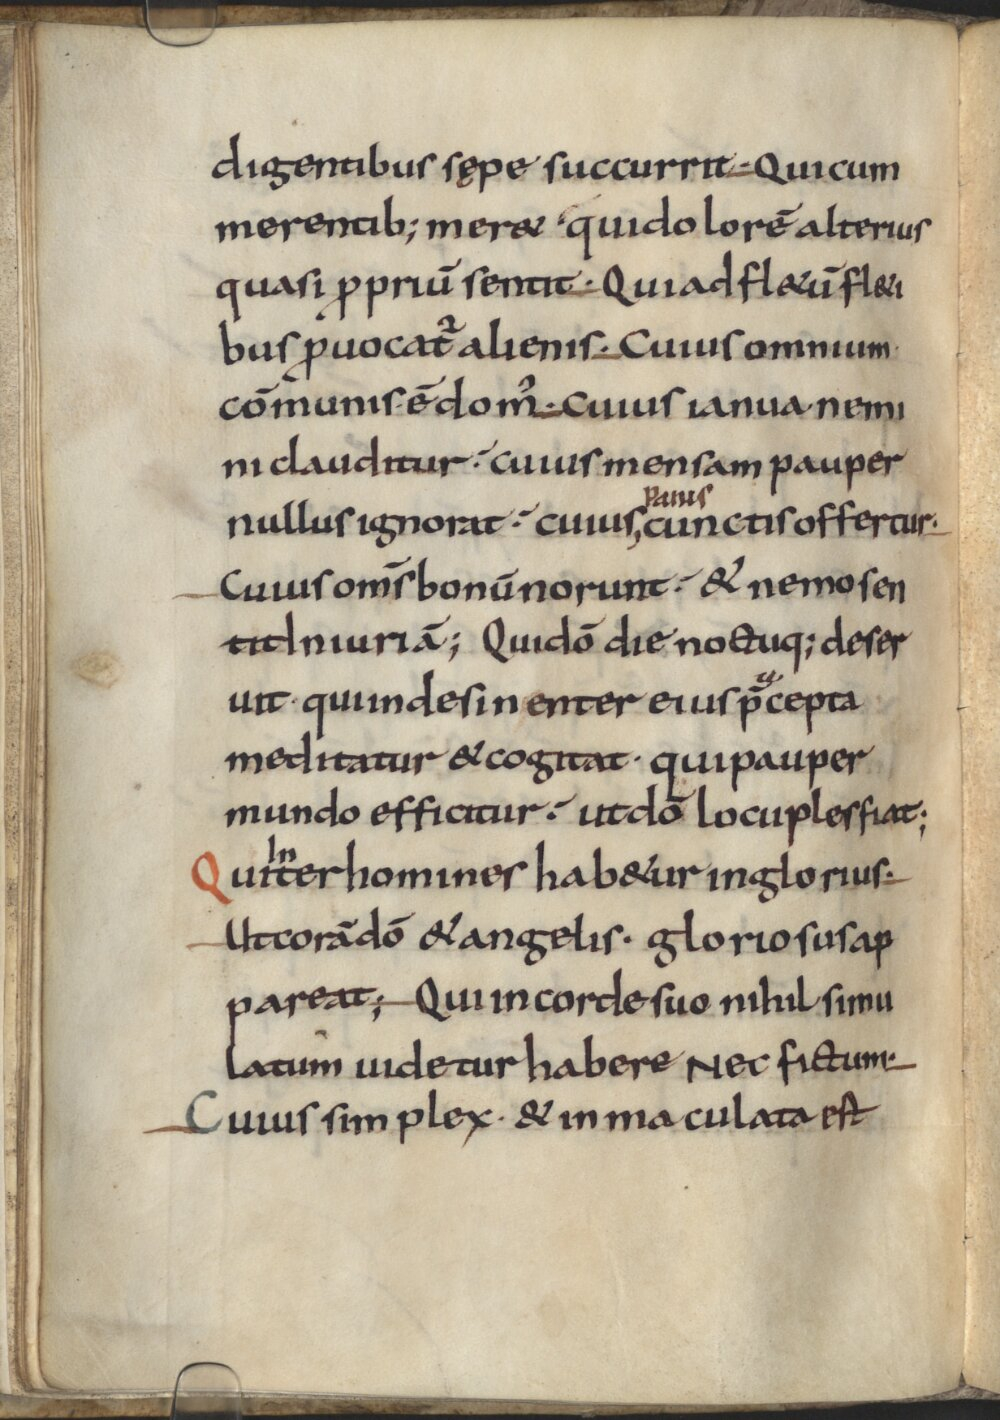 digentibus sępe succurrit· Qui cum
merentib; mer& · qui dolorē alterius
quasi ꝓpriū sentit· Qui ad fl&ū fl&i
bus ꝓuocat᷑ alienis· Cuius omnium
cōmunis ē domꝰ· Cuius ianua nemi
ni clauditur· cuius mensam pauper
nullus ignorat· cuius, panis cunctis offertur·
Cuius om̄s bonū norunt· & nemo sen
tit Iniuriā; Qui dō die noctuq; deser
uit· qui indesinenter eius p̄cepta
meditatur & cogitat· qui pauper
mundo efficitur· ut dō locuples fiat;
Qui Inter homines hab&ur inglorius·
Ut corā dō & angelis· gloriosus ap
pareat; Qui in corde suo nihil simu
latum uidetur habere Nec fictum·
Cuius simplex· & inmaculata est